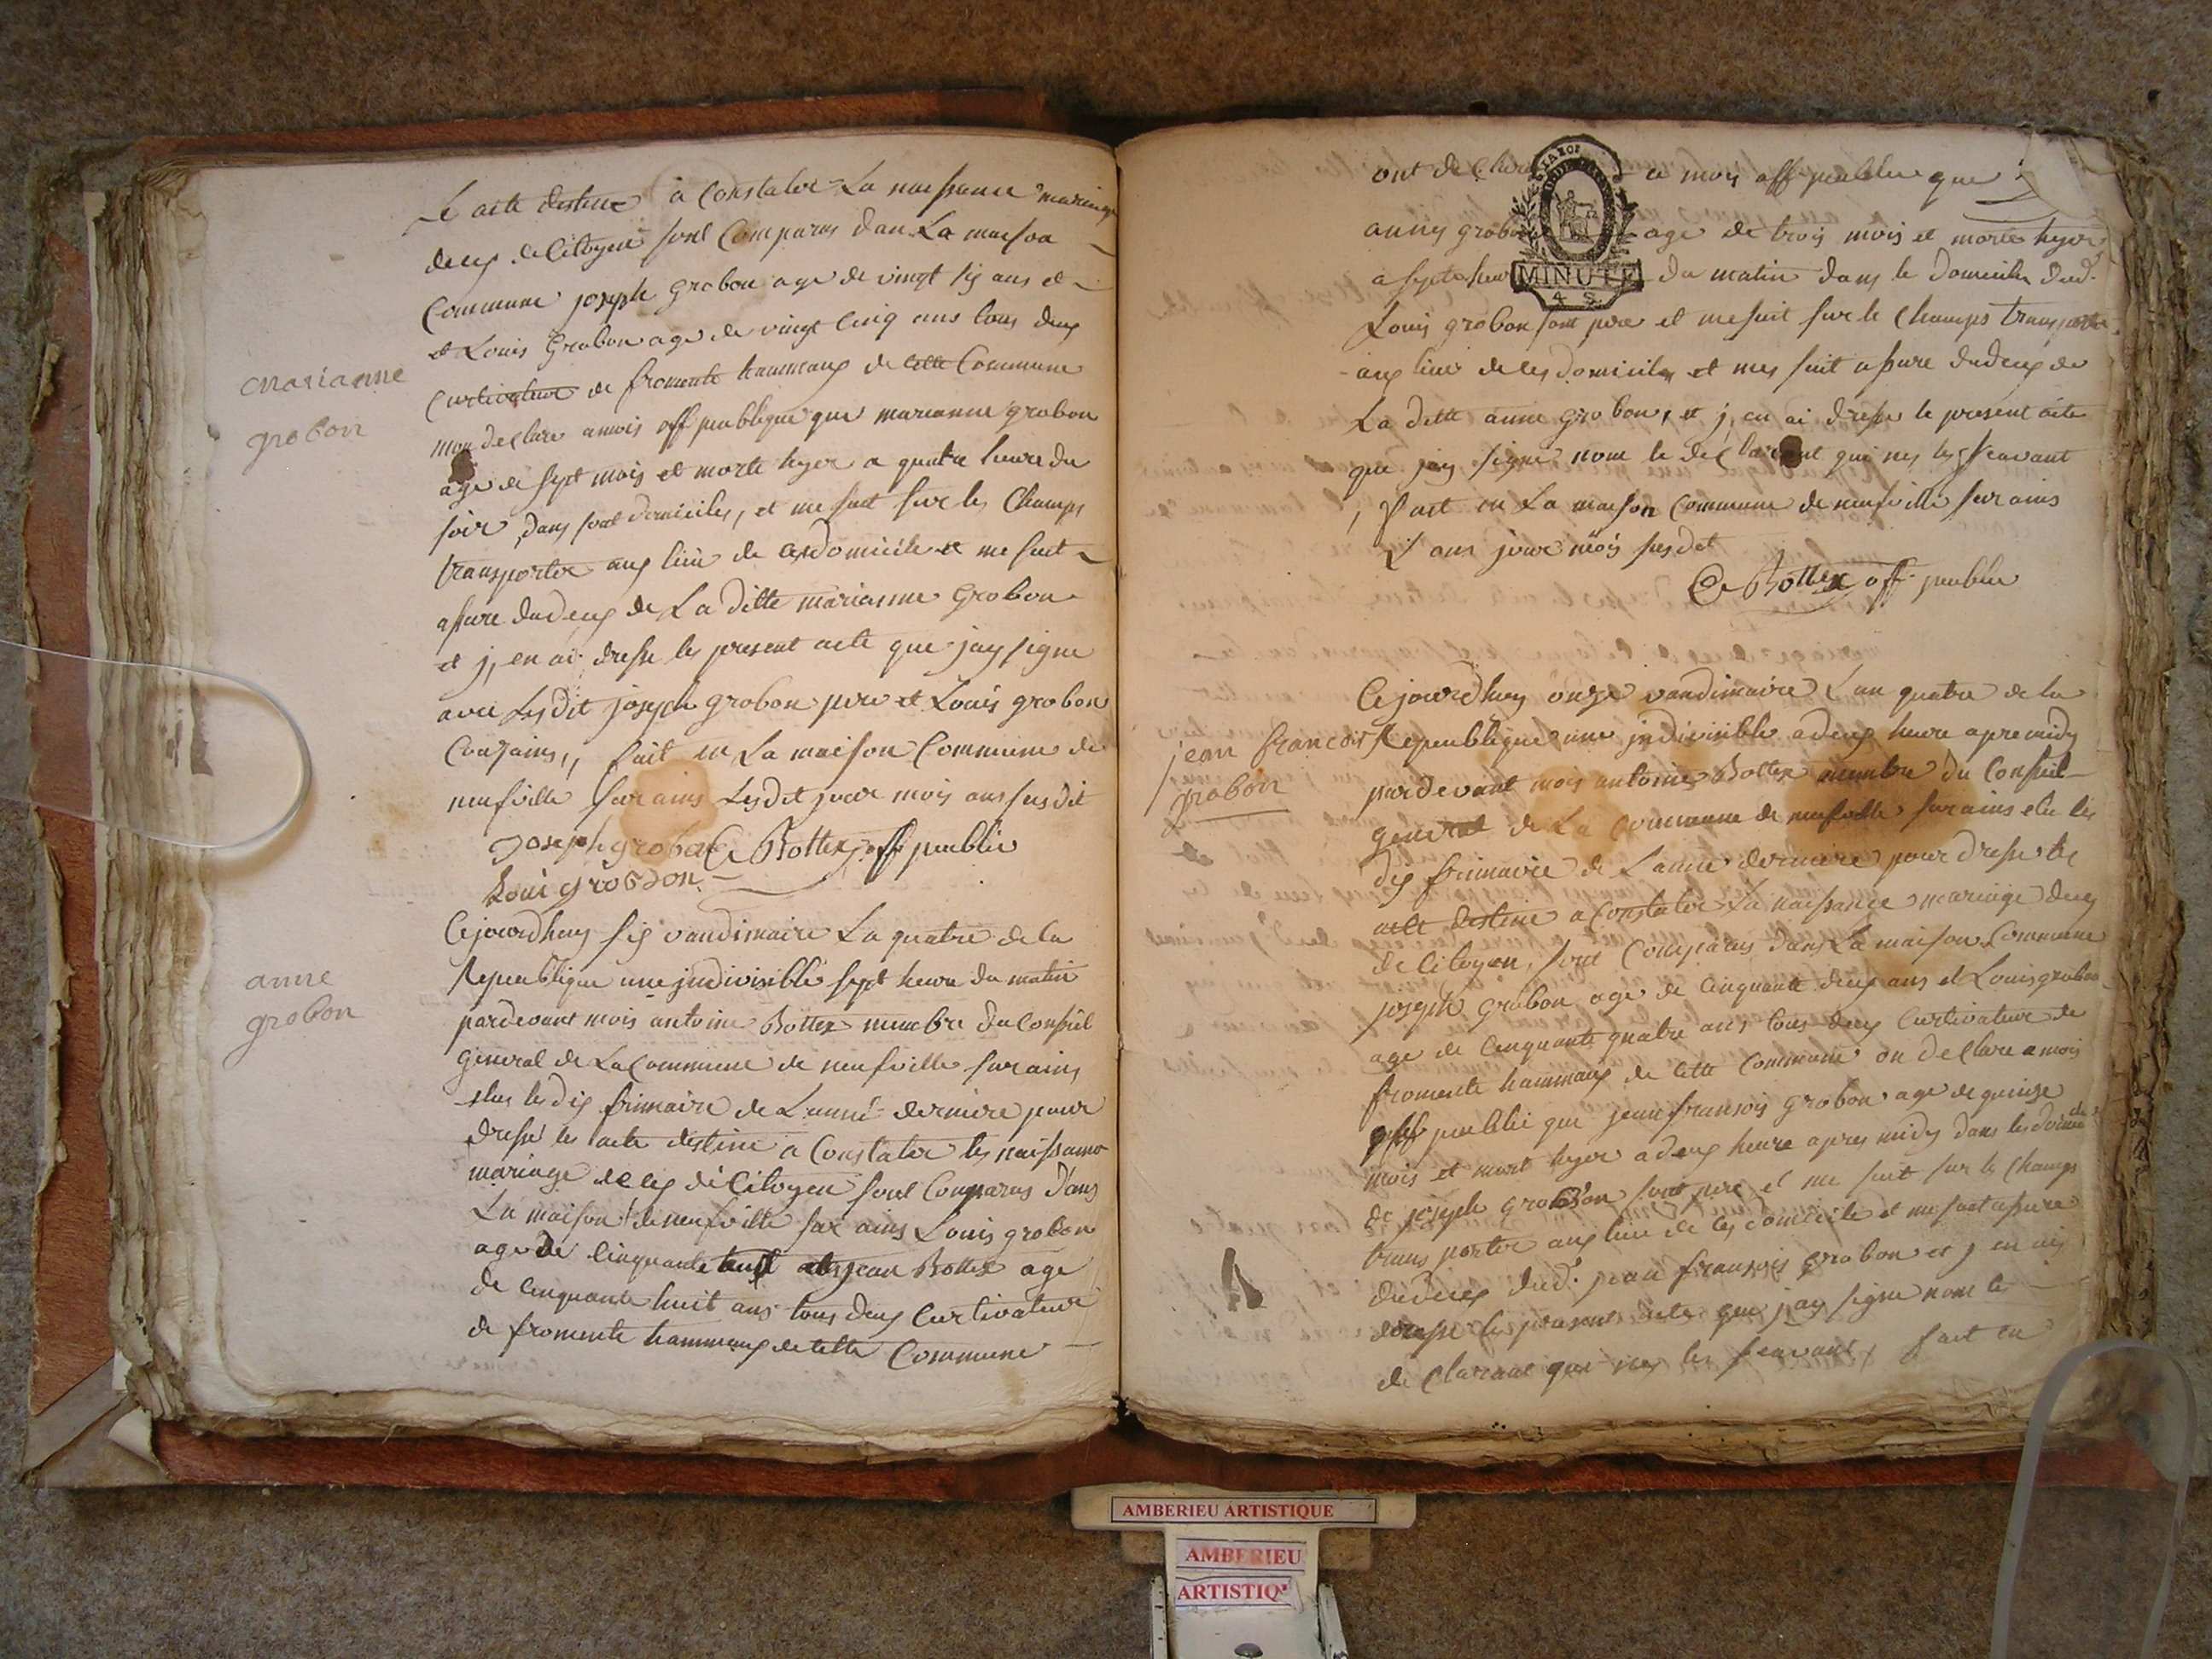 Le acte destine a Constater La naissance mariage
deces de Citoyens sont Comparus dans La maison
Commune joseph grobon age de vingt six ans et
et Louis Grobon age de vingt cinq ans tous deux
Curtivateur de fromente hammaux de cette Commune
mon declare a mois off publique que marianne grobon
age de sept mois et morte hyer a quatre heure du
soir, dans sont domiciles, et me suit sur les Champs
transporter aux lieu de ces domicile et me suit
assure dudeces de La ditte marianne Grobon
et j, en ai dresse les present acte que jay signe
avec Lesdit joseph grobon pere et Louis grobon
Couzains,, fait en La maison Commune de
neufville sur ains Lesdit jour mois ans susdit
Joseph grobon A Bottex off publie
Loui grobon
marianne
grobon
Cejourdhuy six vandimaire La quatre de la
Republique une jndivisible sept heure du matin
pardevant mois antoine Bottex membre du Conseil
general de La Commune de neufville sur ains
elus les dix frimaire de L'année derniere pour
dresse les acte destine a Constater les naissance
mariage deces de Citoyen sont Comparus dans
La maison de neufville sur ains Louis grobon
age de Cinquante jean Bottex age
de cinquante huit ans tous deux Curtivateur
de fromente hammaux de cette Commune
anne
grobon
ont de Clare a mois off publie que
anne grobon age de trois mois et morte hyer
a septe heure du matin dans le domicile dud.
MINUTE
4 S.
Louis grobon sont pere et me suit sur le Champs transporter
aux lieu de ces domicile et mes suit assure dudeces de
La dette anne grobon, et j, en ai dresse le present acte
que jay signe nom le declarant qui nes les scavant
, Fait en La maison Commune de neufville sur ains
L' ans jour mois susdit
A Bottex off publie
Cejourdhuy onze vandimaire L'an quatre de la
Republique une jndivisible a deux heure apre midy
pardevant mois antoine Bottex membre du Conseil
general de La Commune de neufville sur ains elu les
dix frimaire de L'anne derniere pour dresse les
acte destine a Constater La naissance mariage deces
de Citoyen, sont Comparus dans La maison Commune
joseph grobon age de cinquante deux ans et Louis grobon
age de cinquante quatre ans tous deux Curtivateur de
fromente hammaux de cette Commune on declare a mois
off publie que jean fransois grobon age de quinze
mois et mort hyer a deux heure apres midy dans les domicile
de joseph grobon sont pere et me suit sur le Champs
transporter aux lieu de ces domicile et me suit assure
dudeces dud. jean fransois grobon et j en ai
dresse les present acte que jay signe nom les
declarant qui nes les scavant, fait en
jean francois
grobon
AMBERIEU ARTISTIQUE
AMBERIEU
ARTISTIQ